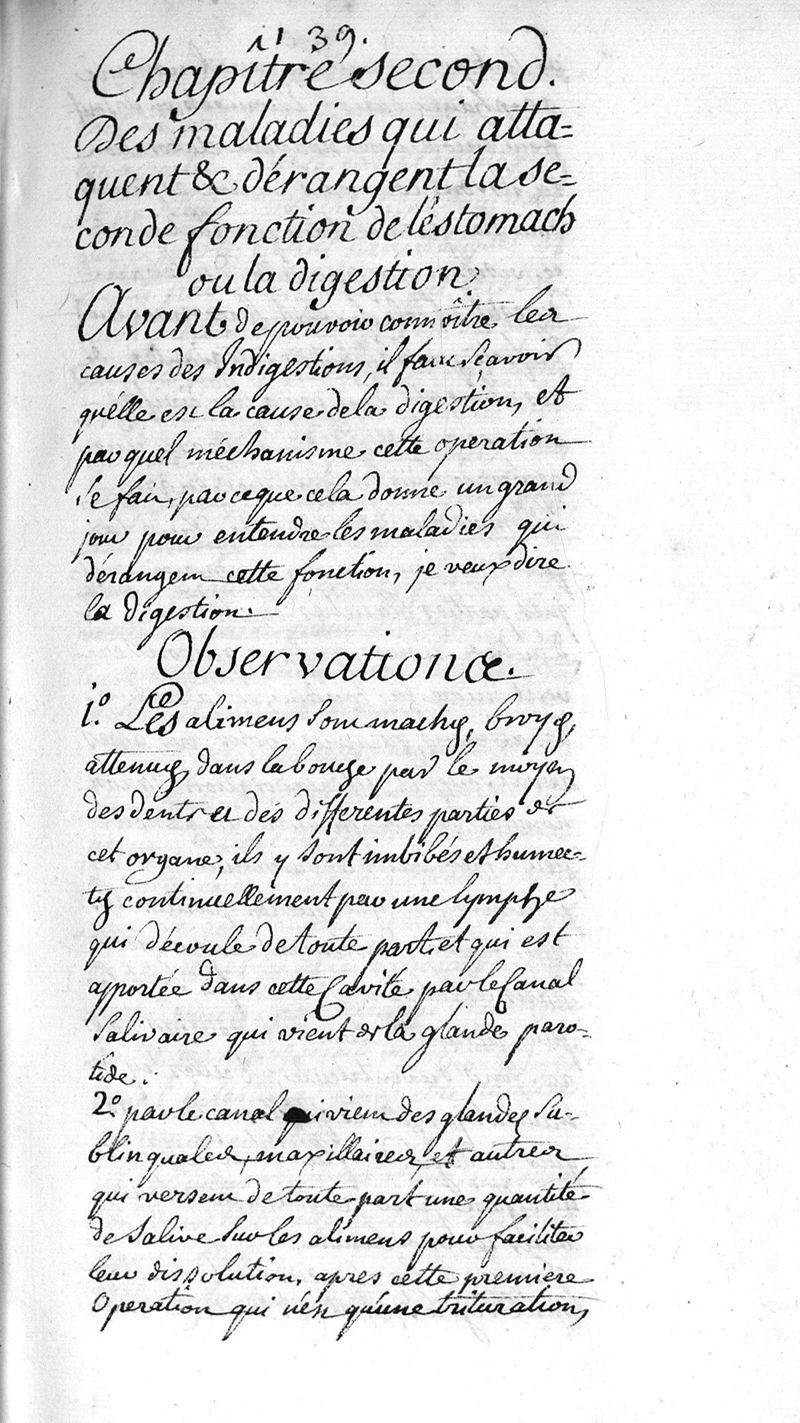 39.
Chapitre second.
Des maladies qui atta=
quent & dérangent la se=
conde fonction de l'éstomach
ou la digestion.
Avant de pouvoir connoître les
causes des Indigestions, il faut sçavoir
qu'élle est la cause de la digestion, et
par quel méchanisme cette operation
se fait, parceque cela donne un grand
jour pour entendre les maladies qui
dérangent cette fonction, je veux dire
la digestion.
Observations.
1.° Les alimens sont machés, broyés,
attenués dans la bouche par le moyen
des dents et des differentes parties de
cet organe, ils y sont imbibés et humec=
tés continuellement par une lymphe
qui découle de toute part et qui est
apportée dans cette Cavité par le Canal
Salivaire qui vient de la glande paro=
tide.
2.° par le canal qui vient des glandes Su=
blinguales, maxillaires, et autres
qui versent de toute part une quantité
de Salive sur les alimens pour faciliter
leur dissolution, apres cette premiere
Operation qui n'ést qu'une trituration,